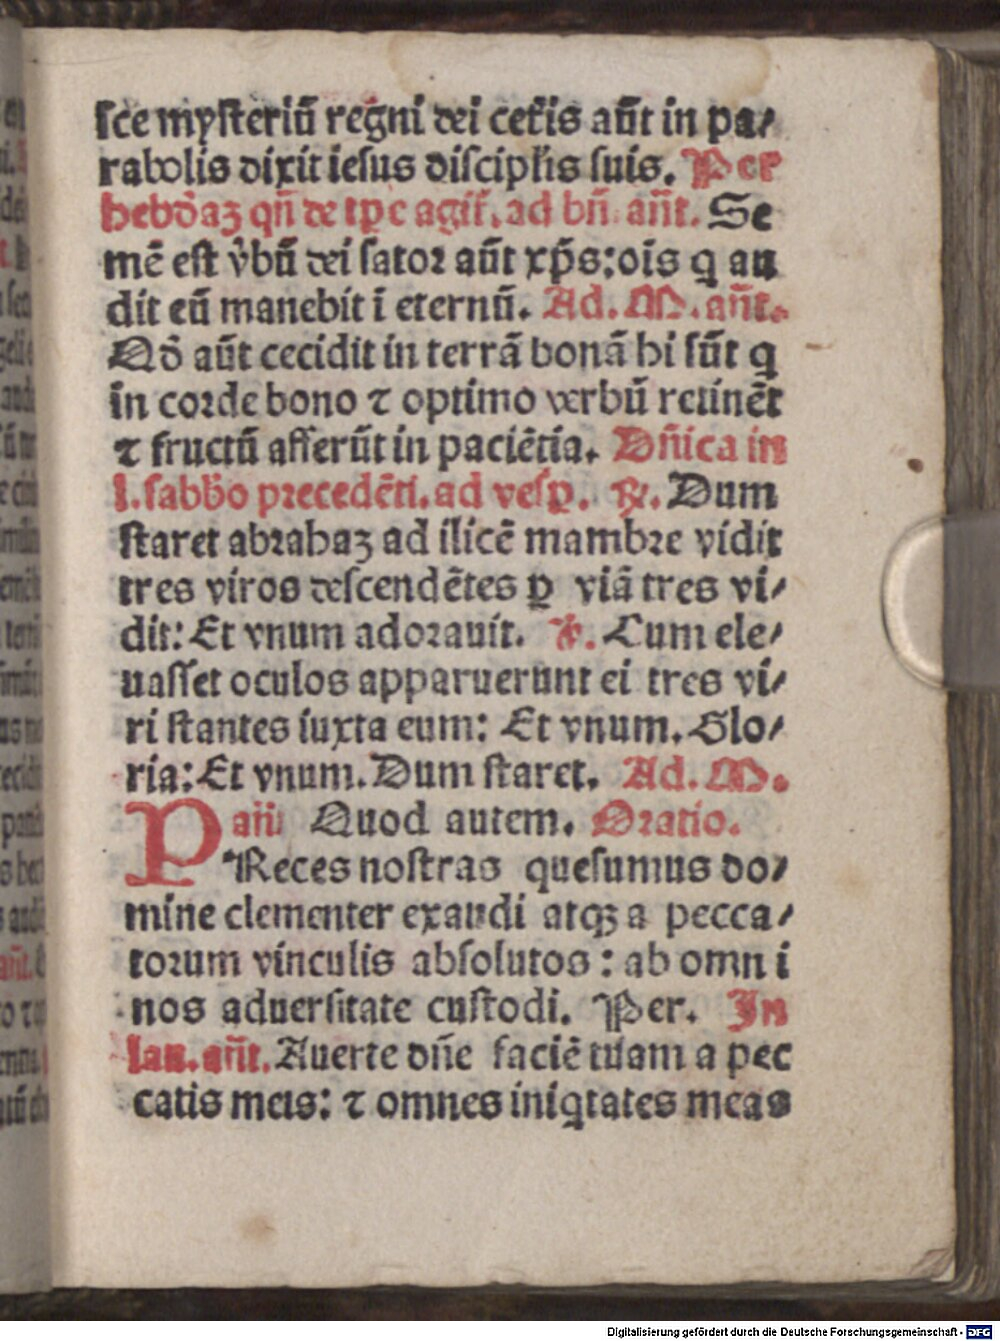 sce mysteriū regni dei cet̄is aūt in pa⸗
rabolis dixit iesus disciplis suis. Per
hebdōaꝫ qn̄ de tp̄e agit̄. ad bn̄. an̄t. Se
mē est v̓bū dei sator aūt xp̄s: oīs q au
dit eū manebit ī eternū. Ad. M. an̄t.
Qd̄ aūt cecidit in terrā bonā hi sūt q
in corde bono ⁊ optimo verbū retinēt
⁊ fructū afferūt in paciētia. Dn̄ica in
l. sabb̄o precedēti. ad vesp̱. ℟. Dum
staret abrahaꝫ ad ilicē mambre vidit
tres viros descendētes ꝑ viā tres vi⸗
dit: Et vnum adorauit. ℣. Cum ele⸗
uasset oculos apparuerunt ei tres vi⸗
ri stantes iuxta eum: Et vnum. Glo⸗
ria: Et vnum. Dum staret. Ad. M.
an̄ Quod autem. Oratio.
PReces nostras quesumus do⸗
mine clementer exaudi atqꝫ a pecca⸗
torum vinculis absolutos : ab omni
nos aduersitate custodi. Per. In
lau. an̄t. Auerte dn̄e faciē tuam a pec
catis meis: ⁊ omnes iniqtates meas
Digitalisierung gefördert durch die Deutsche Forschungsgemeinschaft - DFG